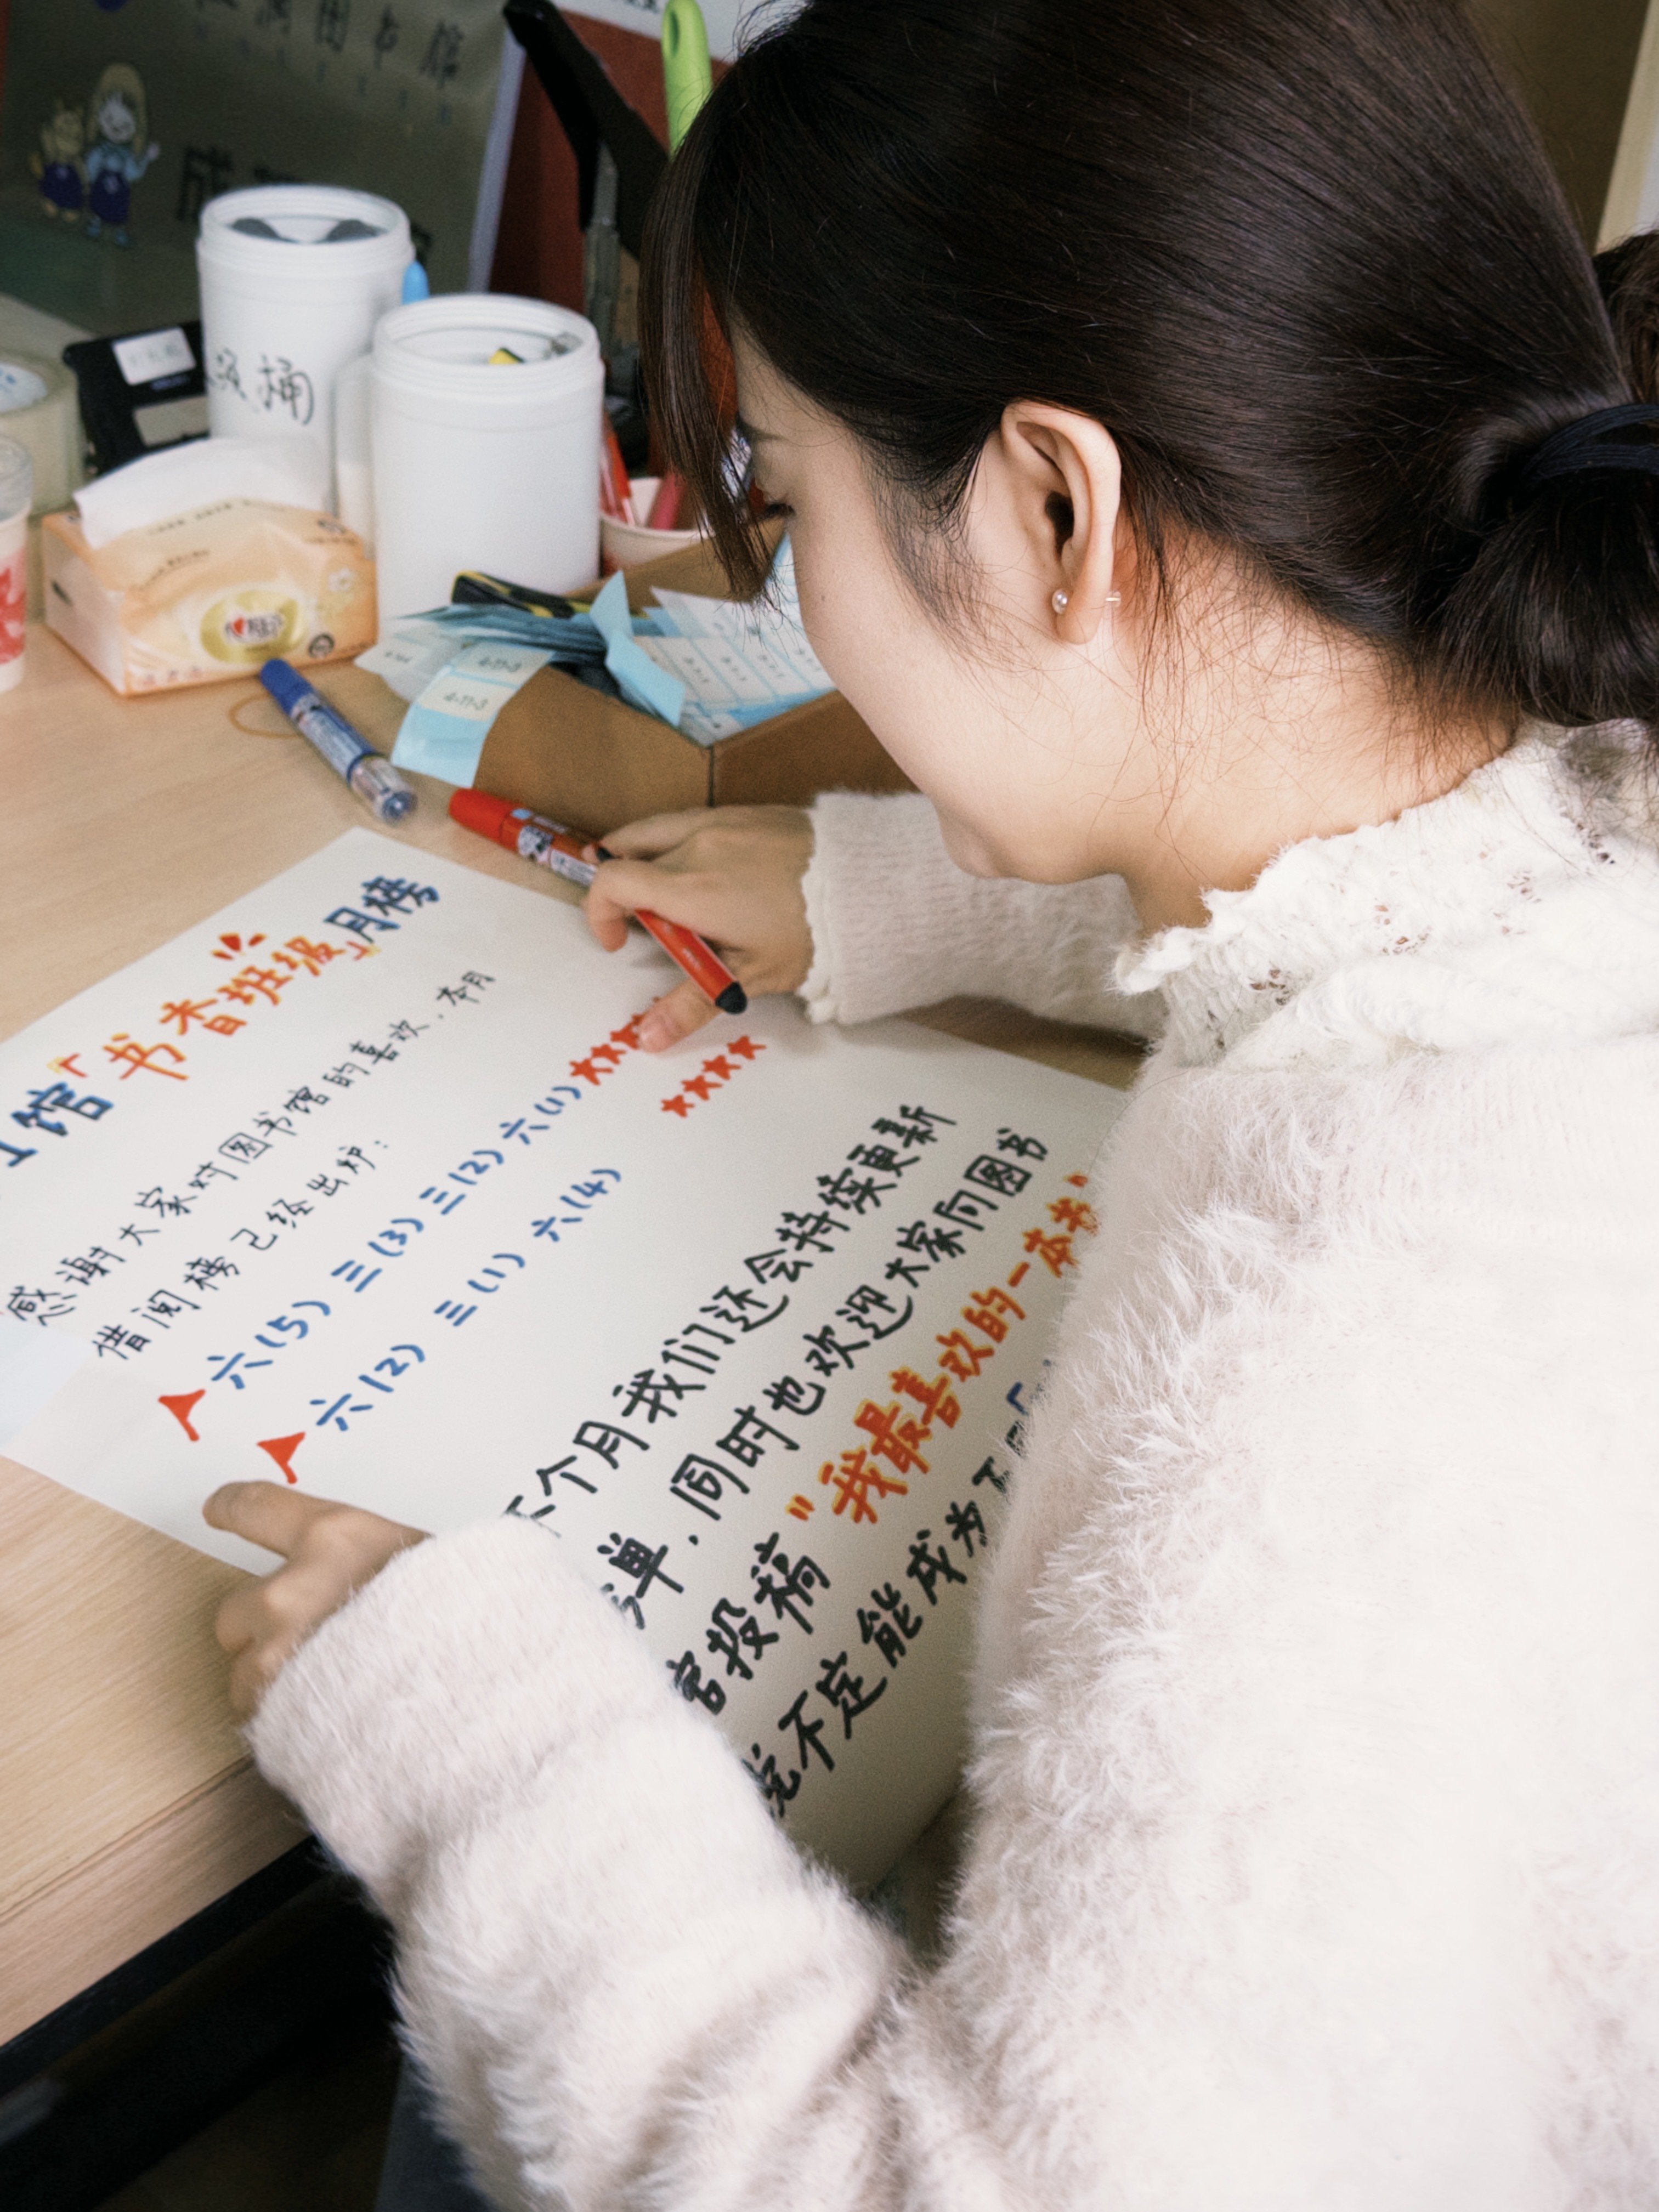 图书馆
馆「书香班级」月榜
感谢大家对图书馆的喜欢，本月
借阅榜已经出炉：
六(5) 三(3) 三(2) 六(1)
六(2) 三(1) 六(4)
个月我们还会持续更新
单，同时也欢迎大家向图书
馆投稿 "我最喜欢的一本书"
说不定能成为下
圾桶
心相印
4-11-3
4-11-3